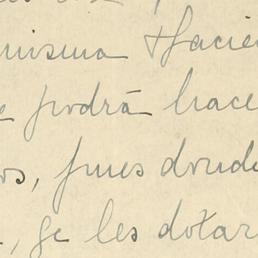 misma Hacie
podrá hace
os, pues donde
, se les dotar